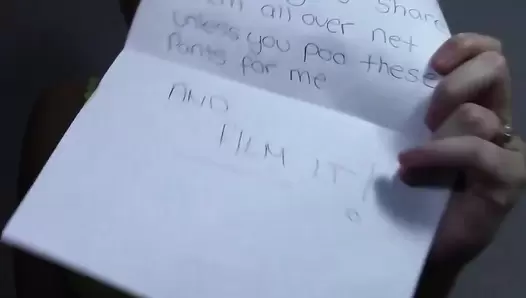 share
all over net
unless you poo these
Pants for me
AND
FILM IT!